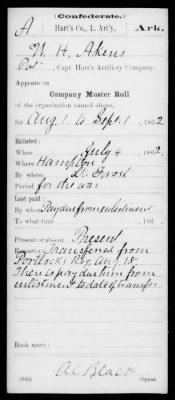 (Confederate.)
A Hart's Co., L. Art'y. Ark.
W. H. Akens
Pvt, Capt. Hart's Artillery Company.
Appears on
Company Muster Roll
of the organization named above,
for Aug 1 to Sept. 1, 1862
Enlisted:
When July 4, 1862.
Where Hampton
By whom Lt. Frost
Period for the war
Last paid:
By whom Pay due from enlistment
To what time , 186 .
Present or absent Present
Remarks: Transferred from
Portlock's Reg. Aug. 18.
There is pay due him from
enlistment to date of transfer
Book mark:
A C Black
(642) Copyist.